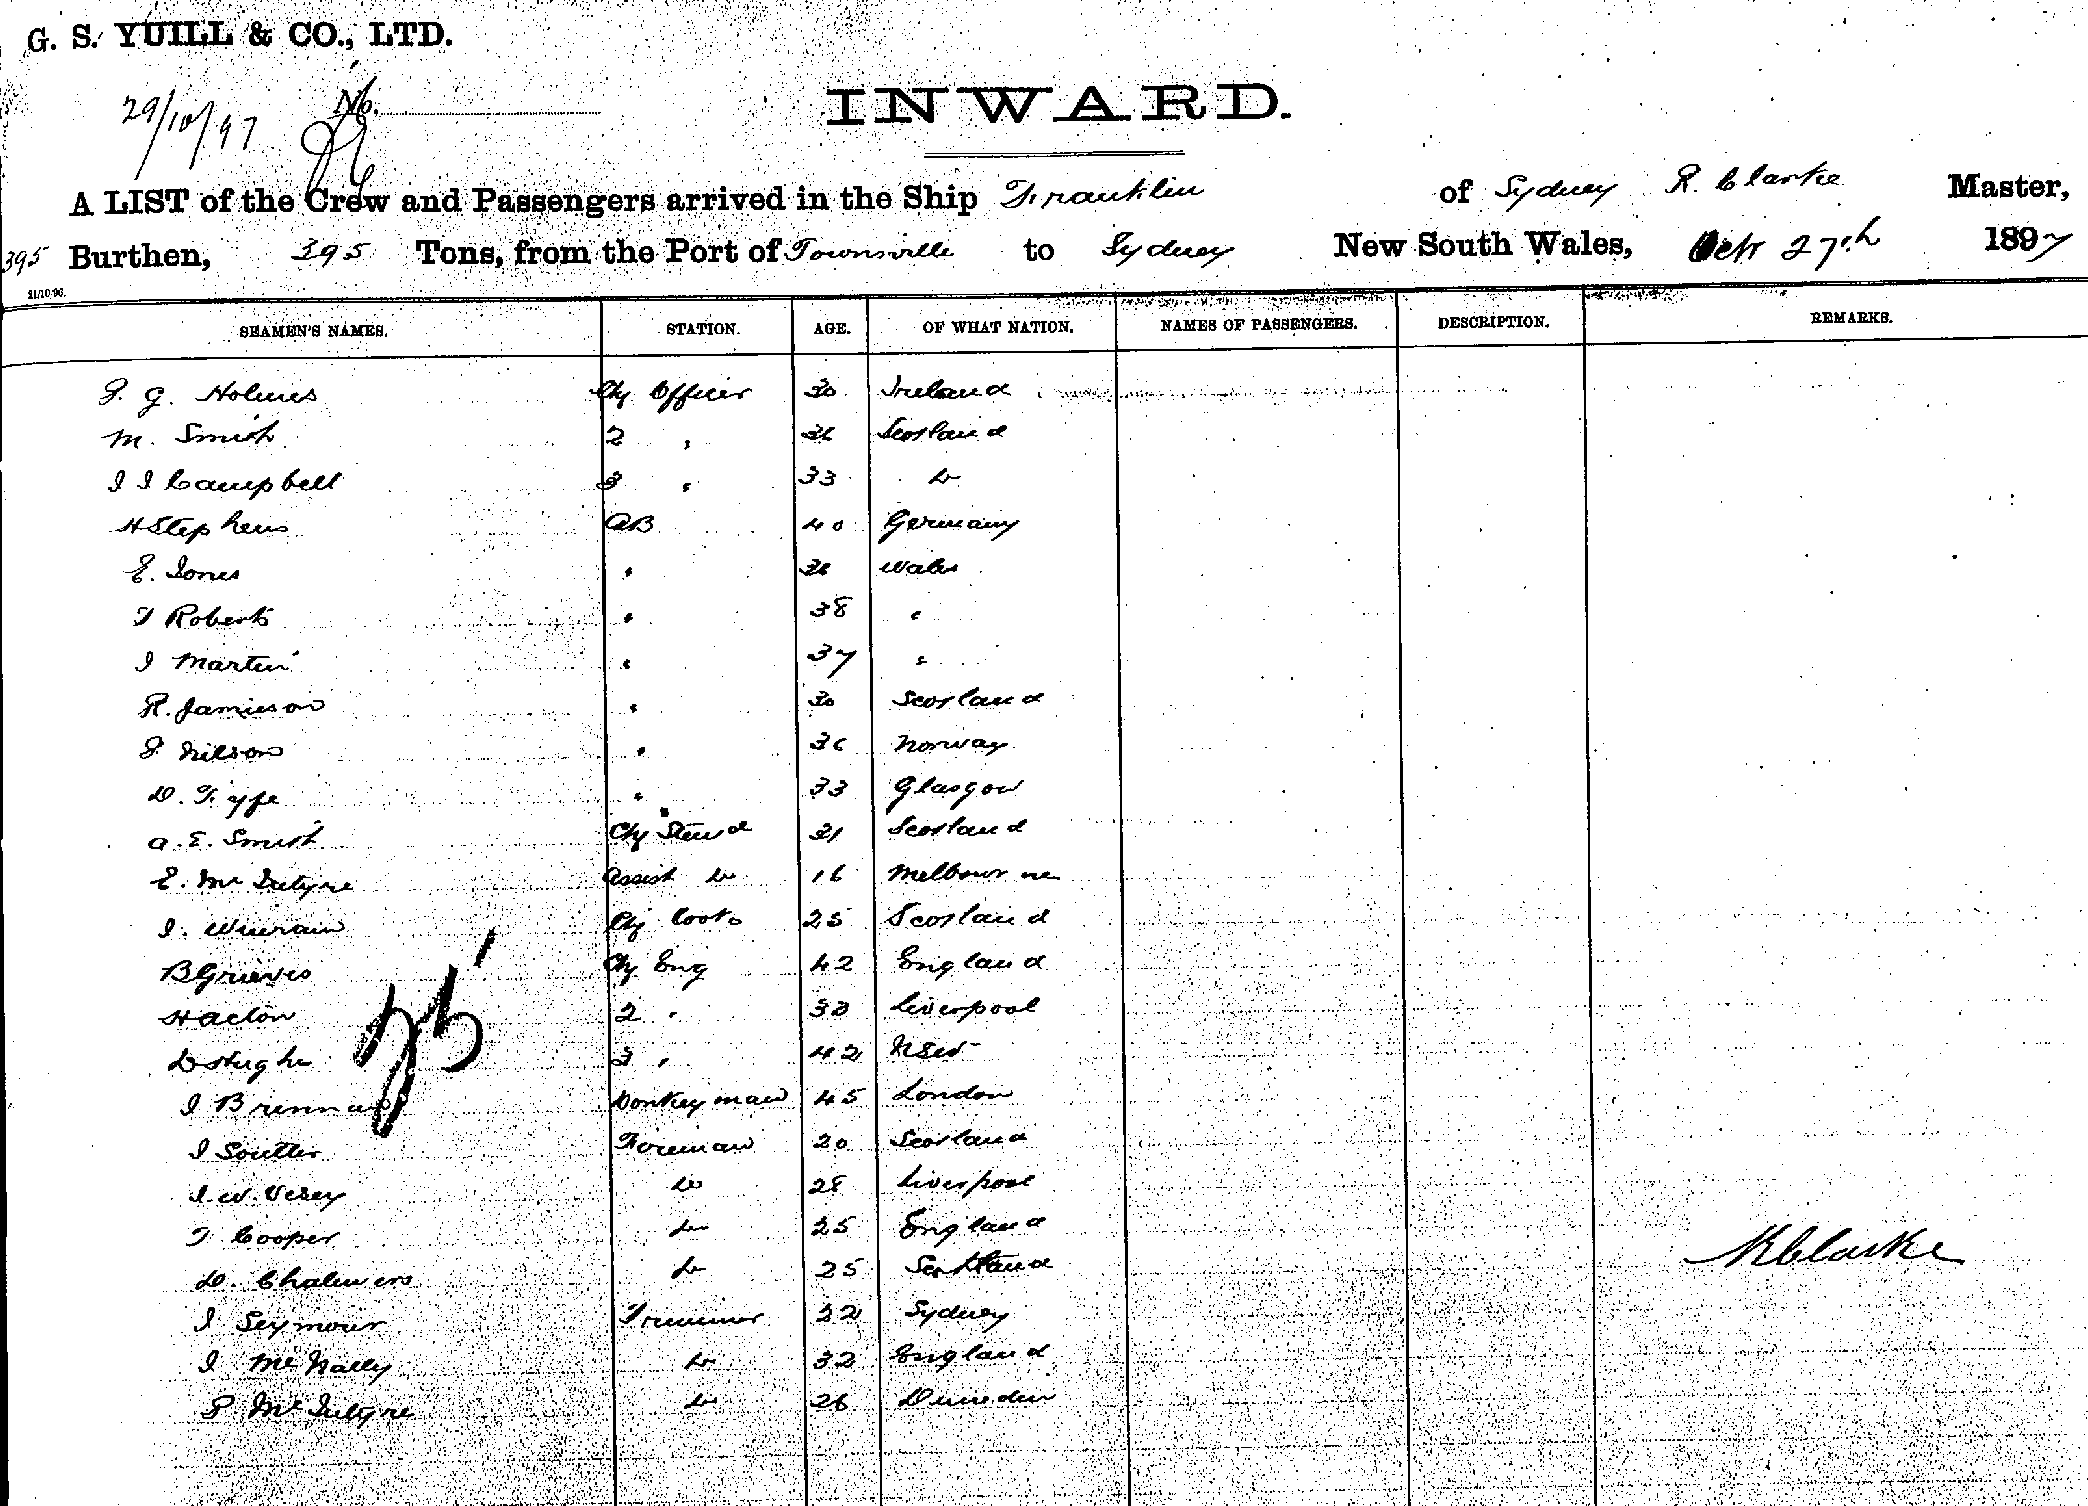 G. S. YUILL & CO., LTD.
29/10/97 No.
INWARD.
A LIST of the Crew and Passengers arrived in the Ship Franklin of Sydney R. Clarke Master,
395 Burthen, 395 Tons, from the Port of Townsville to Sydney New South Wales, Oct 27th 1897
21/10/96.
SEAMEN'S NAMES. STATION. AGE. OF WHAT NATION. NAMES OF PASSENGERS. DESCRIPTION. REMARKS.
G. Holmes Chf Officer 30 Ireland
M. Smith 2 " Scotland
J J Campbell 3 " 33 Do
H Stephens AB 40 Germany
E. Jones " Wales
T Roberts " 38 "
J Martin " 37 "
R. Jamieson " 30 Scotland
Nilson " 36 Norway
D. Fyfe " 33 Glasgow
A. E. Smith Chf Stewd 31 Scotland
E. McIntyre Assist Do 16 Melbourne
J. Chf Cook 25 Scotland
B Grieves Chf Eng 42 England
H Acton 2 " 33 Liverpool
D Hughe 3 " 42 NSW
J Brennan Donkeyman 45 London
J Soutter Fireman 20 Scotland
J. W. Verey Do 28 Liverpool
T Cooper Do 25 England
D. Chalmers Do 25 Scotland
J Seymour Trimmer 22 Sydney
J McNally Do 32 England
P McIntyre Do 26 Dunedin
R Clarke